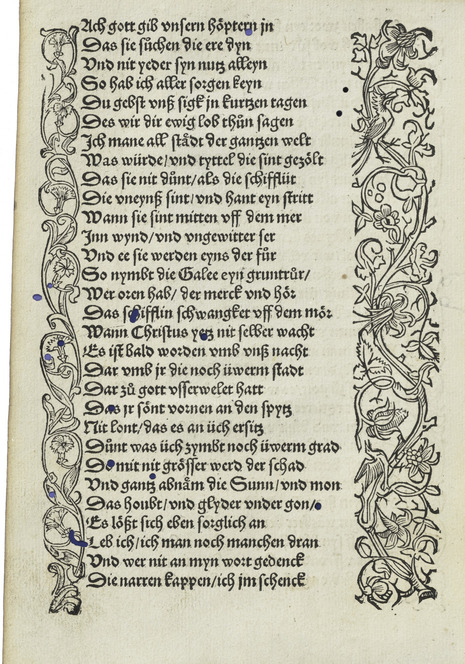 Ach gott gib vnsern höptern jn
Das sie sůchen die ere dyn
Vnd nit yeder syn nutz alleyn
So hab ich aller sorgen keyn
Du gebst vnß sigk jn kurtzen tagen
Des wir dir ewig lob thůn sagen
Jch mane all städt der gantzen welt
Was würde/vnd tyttel die sint gezölt
Das sie nit důnt/als die schifflüt
Die vneynß sint/vnd hant eyn stritt
Wann sie sint mitten vff dem mer
Jnn wynd/vnd vngewitter ser
Vnd ee sie werden eyns der fůr
So nymbt die Galee eyn gruntrůr/
Wer oren hab/ der merck vnd hör
Das schifflin schwangket vff dem mör
Wann Christus yetz nit selber wacht
Es ist bald worden vmb vnß nacht
Dar vmb jr die noch üwerm stadt
Dar zů gott vsserwelet hatt
Das jr sönt vornen an den spytz
Nit lont/das es an üch ersitz
Důnt was üch zymbt noch üwerm grad
Do mit nit grösser werd der schad
Vnd gantz abnäm die Sunn/vnd mon
Das houbt/vnd glyder vnder gon/
Es lößt sich eben sorglich an
Leb ich/ich man noch manchen dran
Vnd wer nit an myn wort gedenck
Die narren kappen/ich jm schenck